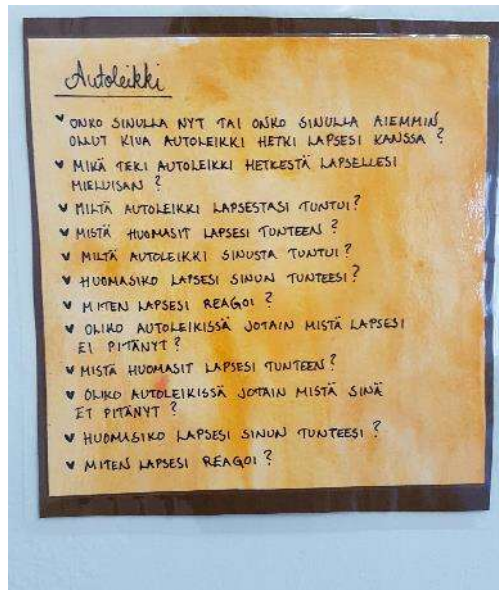 Autoleikki
♥ ONKO SINULLA NYT TAI ONKO SINULLA AIEMMIN
OLLUT KIVA AUTOLEIKKI HETKI LAPSESI KANSSA ?
♥ MIKÄ TEKI AUTOLEIKKI HETKESTÄ LAPSELLESI
MIELUISAN ?
♥ MILTÄ AUTOLEIKKI LAPSESTASI TUNTUI ?
♥ MISTÄ HUOMASIT LAPSESI TUNTEEN ?
♥ MILTÄ AUTOLEIKKI SINUSTA TUNTUI ?
♥ HUOMASIKO LAPSESI SINUN TUNTEESI ?
♥ MITEN LAPSESI REAGOI ?
♥ OLIKO AUTOLEIKISSÄ JOTAIN MISTÄ LAPSESI
EI PITÄNYT ?
♥ MISTÄ HUOMASIT LAPSESI TUNTEEN ?
♥ OLIKO AUTOLEIKISSÄ JOTAIN MISTÄ SINÄ
ET PITÄNYT ?
♥ HUOMASIKO LAPSESI SINUN TUNTEESI ?
♥ MITEN LAPSESI REAGOI ?